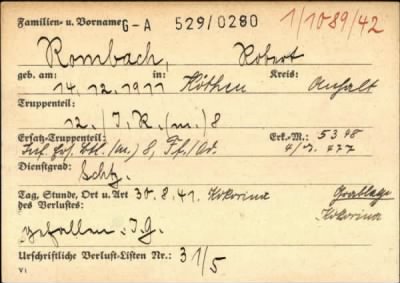 Familien- u. Vorname G-A 529/0280 1/1089/42
Rombach, Robert
geb. am: in: Kreis:
14. 12. 1911 Köthen Anhalt
Truppenteil:
12. / I. R. (m.) 8
Ersatz-Truppenteil: Erk.-M.: 5398
Inf. Ers. Btl. (m) 8, Ff./Od. 4/J. 477
Dienstgrad:
Schtz.
Tag, Stunde, Ort u. Art 30. 8. 41. Kokorina Grablage
des Verlustes: Kokorina
gefallen. I.G.
Urschriftliche Verlust-Listen Nr.: 31/5
VI